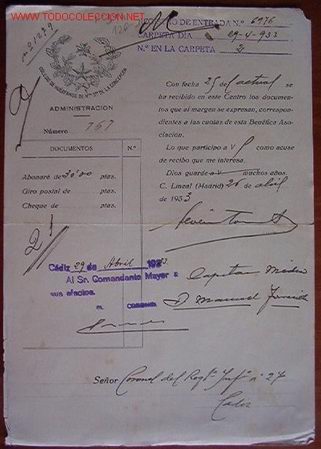 WWW.TODOCOLECCION.NET
DE ENTRADA N.º 6976
CARPETA DIA 29-4-933
N.º EN LA CARPETA
ADMINISTRACION
Número 767
DOCUMENTOS N.º
Abonaré de 30'00 ptas.
Giro postal de ptas.
Cheque de ptas.
Con fecha 25 del actual
se ha recibido en este Centro los documentos
que al margen se expresan, correspondientes
a las cuotas de esta Benéfica Asociación.
Lo que participo a V para como acuse
de recibo que me interesa.
Dios guarde a V muchos años.
C. Lineal (Madrid) 26 de abril
de 1933
Cádiz 29 de Abril 1933
Al Sr. Comandante Mayor a
sus efectos.
EL CORONEL
Capitan Médico
D. Manuel
Señor Coronel del Regto Infa n.º 27
Cadiz